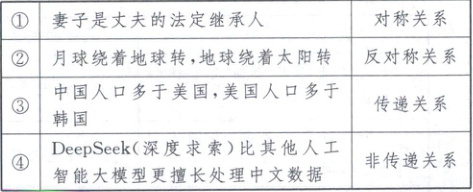 ① 妻子是丈夫的法定继承人 对称关系
② 月球绕着地球转,地球绕着太阳转 反对称关系
中国人口多于美国,美国人口多于
③ 传递关系
韩国
DeepSeek(深度求索)比其他人工
④ 非传递关系
智能大模型更擅长处理中文数据